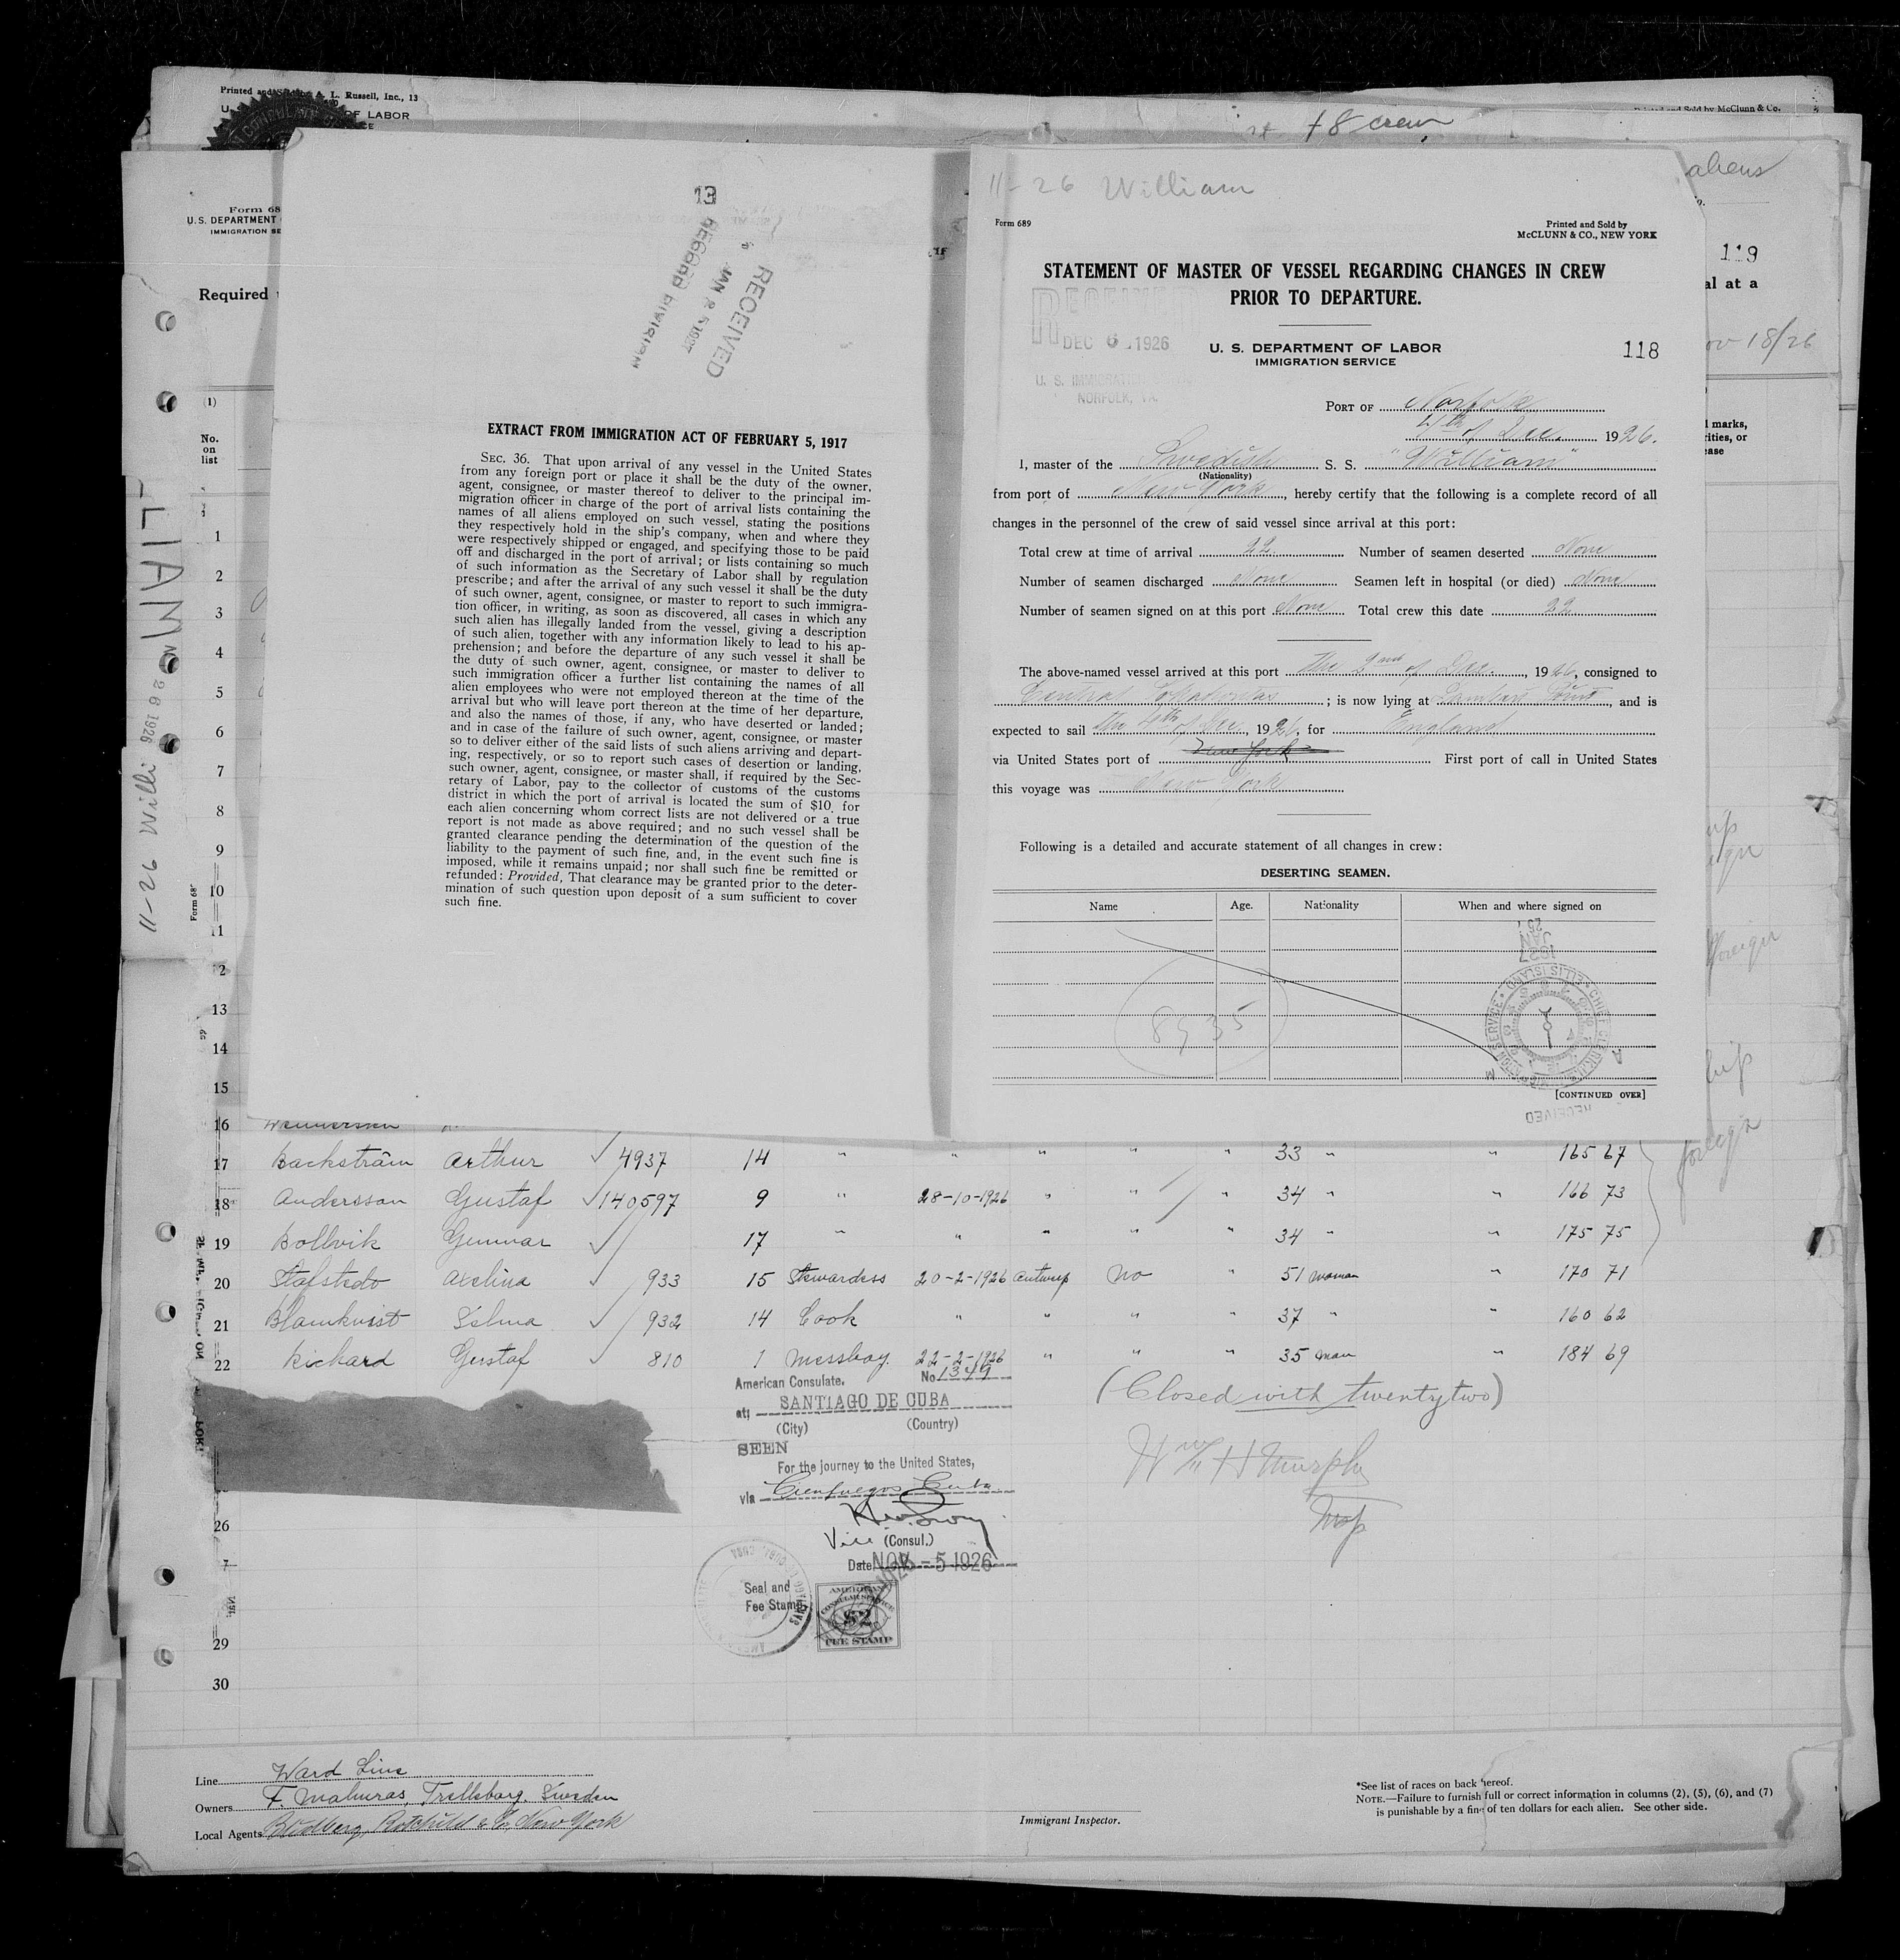 Printed and Sold by A. L. Russell, Inc., 13
OF LABOR
Printed and Sold by McClunn & Co.
+8 crew
aliens
119
al at a
ov 18/26
marks,
rities, or
ease
Form 68
U. S. DEPARTMENT
IMMIGRATION SE
Required
(1)
No.
on
list
LIAM
11-26 Willi
13
RECORD DIVISION
JAN 25 1927
RECEIVED
EXTRACT FROM IMMIGRATION ACT OF FEBRUARY 5, 1917
SEC. 36. That upon arrival of any vessel in the United States
from any foreign port or place it shall be the duty of the owner,
agent, consignee, or master thereof to deliver to the principal im-
migration officer in charge of the port of arrival lists containing the
names of all aliens employed on such vessel, stating the positions
they respectively hold in the ship's company, when and where they
were respectively shipped or engaged, and specifying those to be paid
off and discharged in the port of arrival; or lists containing so much
of such information as the Secretary of Labor shall by regulation
prescribe; and after the arrival of any such vessel it shall be the duty
of such owner, agent, consignee, or master to report to such immigra-
tion officer, in writing, as soon as discovered, all cases in which any
such alien has illegally landed from the vessel, giving a description
of such alien, together with any information likely to lead to his ap-
prehension; and before the departure of any such vessel it shall be
the duty of such owner, agent, consignee, or master to deliver to
such immigration officer a further list containing the names of all
alien employees who were not employed thereon at the time of the
arrival but who will leave port thereon at the time of her departure,
and also the names of those, if any, who have deserted or landed;
and in case of the failure of such owner, agent, consignee, or master
so to deliver either of the said lists of such aliens arriving and depart-
ing, respectively, or so to report such cases of desertion or landing,
such owner, agent, consignee, or master shall, if required by the Sec-
retary of Labor, pay to the collector of customs of the customs
district in which the port of arrival is located the sum of $10 for
each alien concerning whom correct lists are not delivered or a true
report is not made as above required; and no such vessel shall be
granted clearance pending the determination of the question of the
liability to the payment of such fine, and, in the event such fine is
imposed, while it remains unpaid; nor shall such fine be remitted or
refunded: Provided, That clearance may be granted prior to the deter-
mination of such question upon deposit of a sum sufficient to cover
such fine.
11-26 William
Form 689
Printed and Sold by
McCLUNN & CO., NEW YORK
STATEMENT OF MASTER OF VESSEL REGARDING CHANGES IN CREW
PRIOR TO DEPARTURE.
RECEIVED
DEC 6 1926
U. S. IMMIGRATION
NORFOLK, VA.
U. S. DEPARTMENT OF LABOR
IMMIGRATION SERVICE
118
PORT OF Norfolk
4th of Dec. 1926.
I, master of the Swedish S. S. "William"
(Nationality)
from port of New York, hereby certify that the following is a complete record of all
changes in the personnel of the crew of said vessel since arrival at this port:
Total crew at time of arrival 22 Number of seamen deserted None
Number of seamen discharged None Seamen left in hospital (or died) None
Number of seamen signed on at this port None Total crew this date 22
The above-named vessel arrived at this port the 2nd of Dec., 1926, consigned to
Central ; is now lying at Lambert Point, and is
expected to sail the 4th of Dec, 1926, for England
via United States port of New York First port of call in United States
this voyage was New York
Following is a detailed and accurate statement of all changes in crew:
DESERTING SEAMEN.
Name Age. Nationality When and where signed on
8935
1927 JAN 25
CHIEF CLERK ELLIS ISLAND
RECEIVED
[CONTINUED OVER]
1
2
3
4
5
6
7
8
9
10
11
12
13
14
15
16
17 Backström Arthur 4937 14 " " " " " 33 " " 165 67
18 Andersson Gustaf 140597 9 " 28-10-1926 " " " 34 " " 166 73
19 Bollvik Gunnar 17 " " " " " 34 " " 175 75
20 Stafstedo Axelina 933 15 Stewardess 20-2-1926 Antwerp No " 51 woman " 170 71
21 Blamkvist Selma 932 14 Cook " " " " 37 " " 160 62
22 Richard Gustaf 810 1 Messboy. 22-2-1926 " " " 35 man " 184 69
foreign
American Consulate. No 1349
at; SANTIAGO DE CUBA
(City) (Country)
SEEN
For the journey to the United States,
via Cienfuegos Cuba
Vice (Consul.)
Date NOV -5 1926
Seal and
Fee Stamp
AMERICAN
CONSULAR SERVICE
$2
FEE STAMP
(Closed with twentytwo)
Wm H Murphy
Insp
26
29
30
Line Ward Line
Owners F. Malmros, Trelleborg, Sweden
Local Agents Budberg, Rotchild & Co, New York
Immigrant Inspector.
*See list of races on back hereof.
NOTE.—Failure to furnish full or correct information in columns (2), (5), (6), and (7)
is punishable by a fine of ten dollars for each alien. See other side.